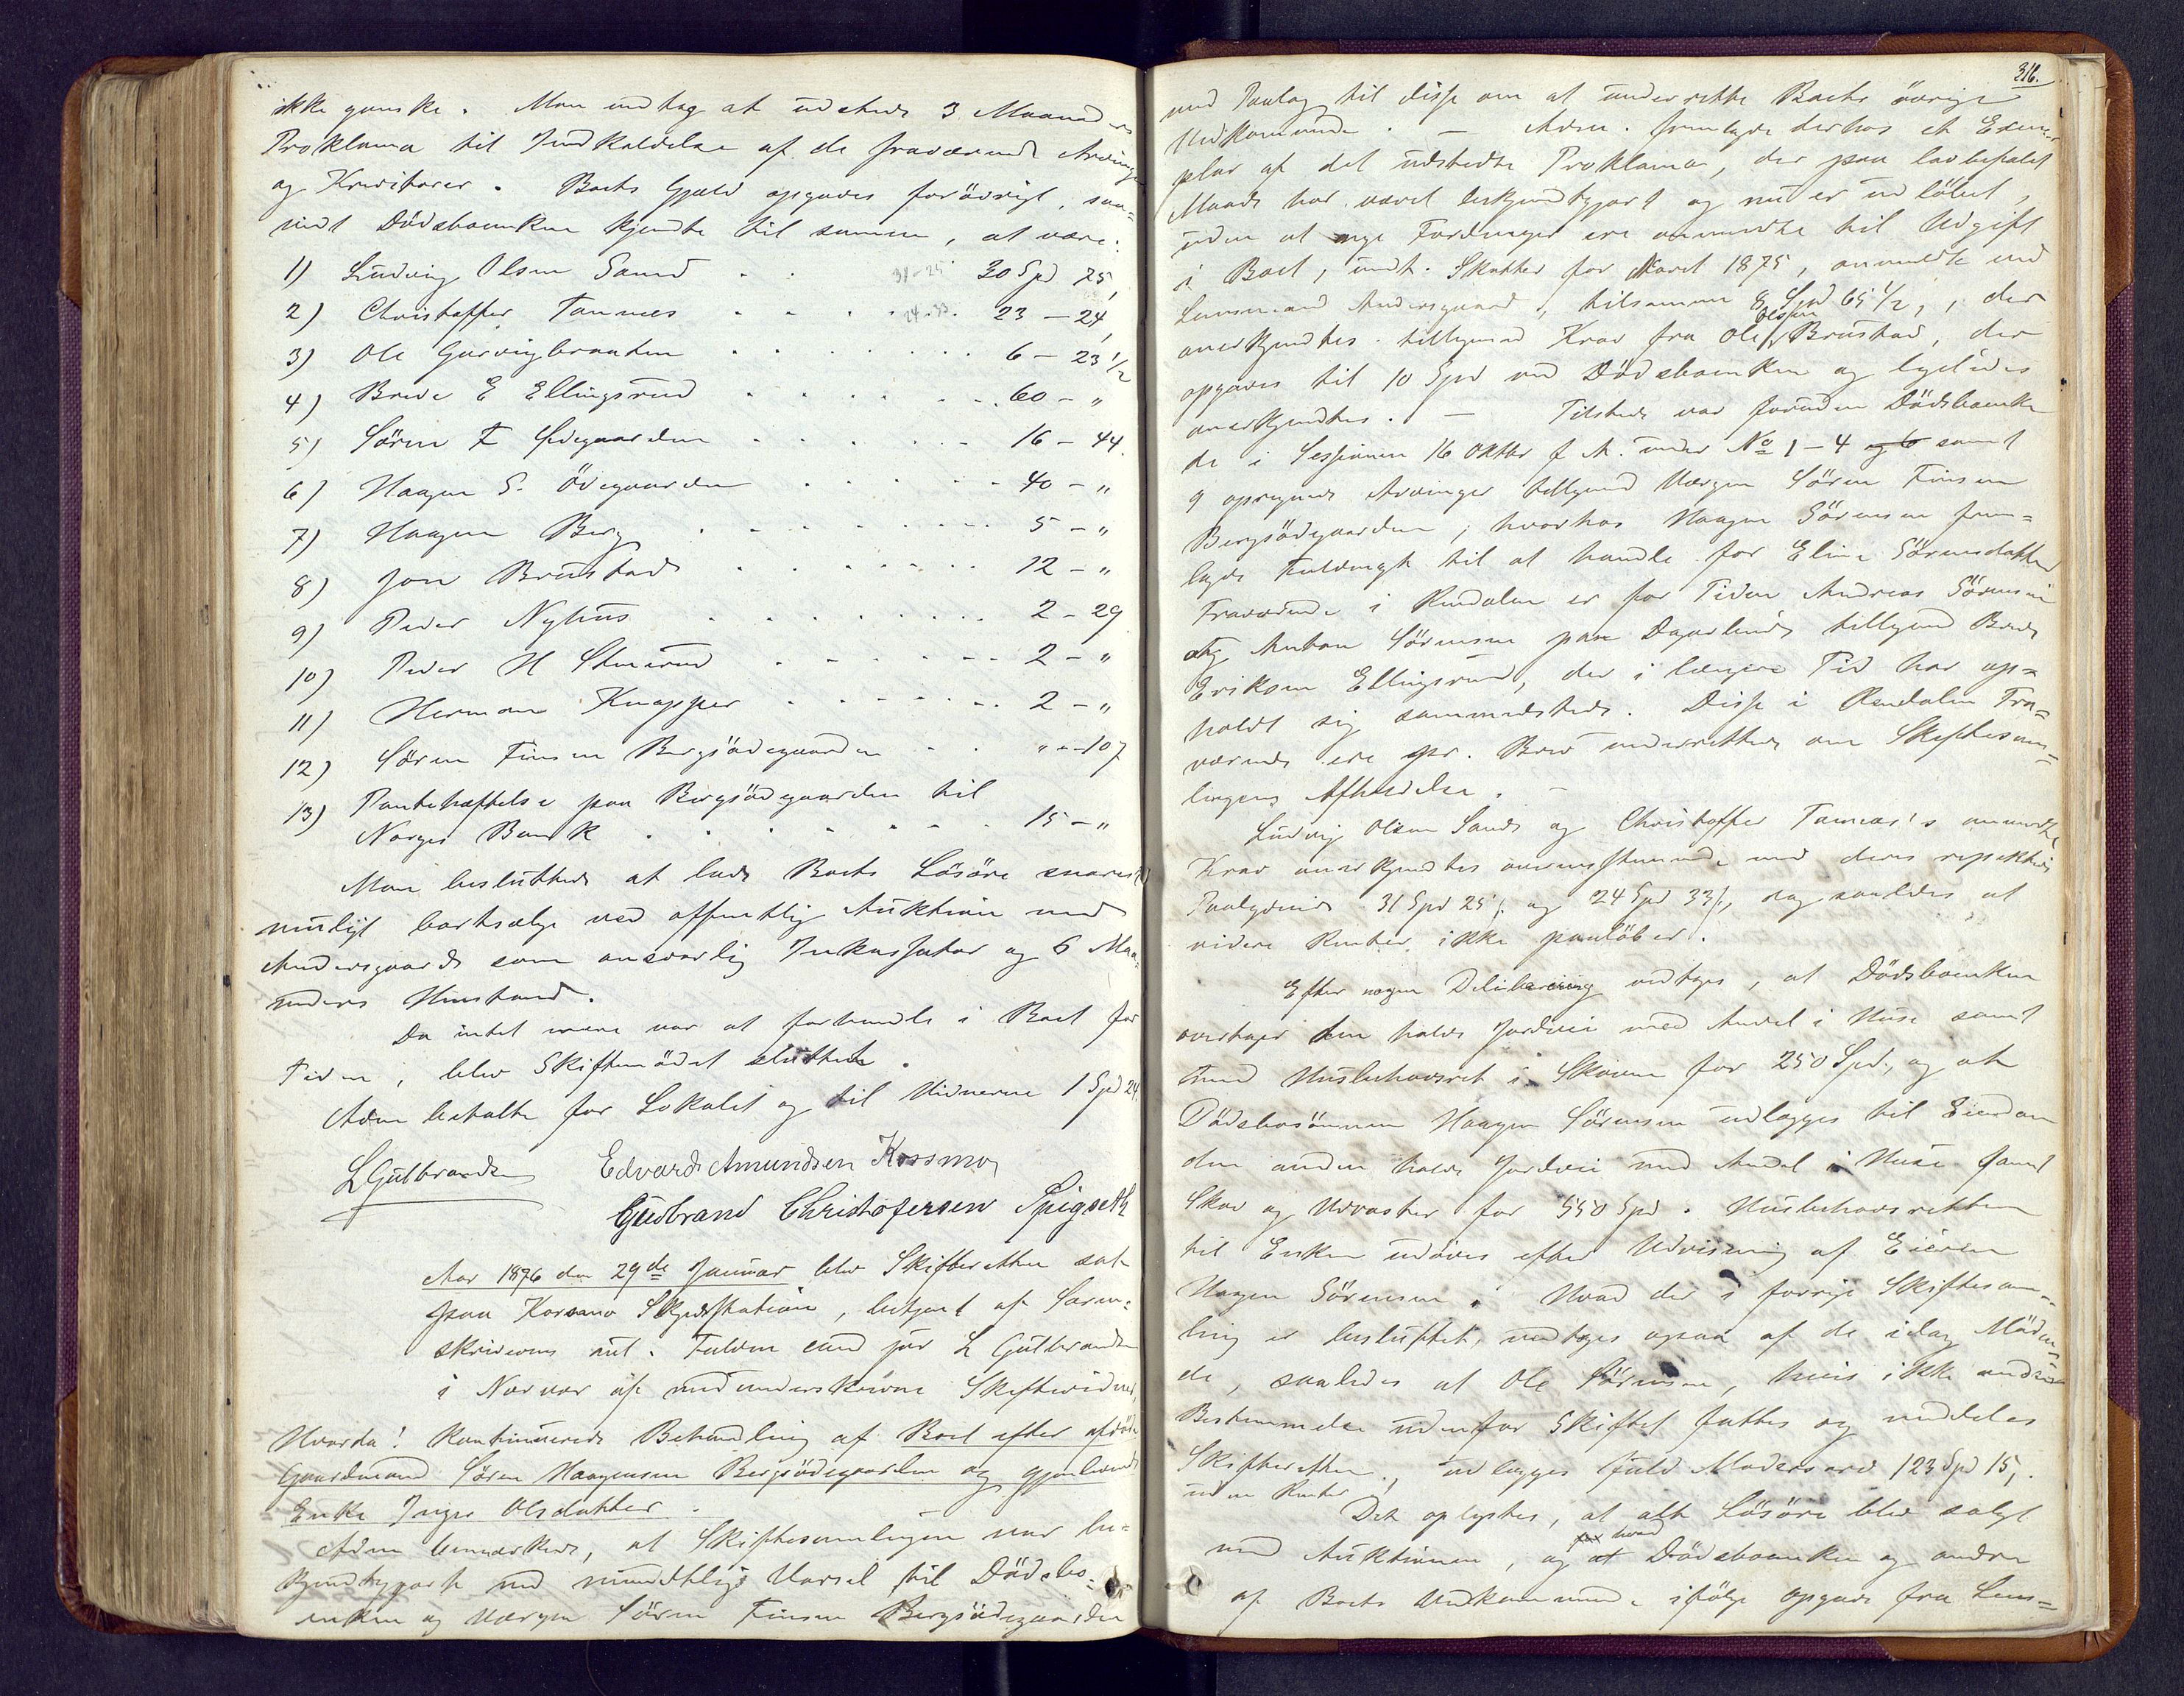 ikke ganske. Man vedtog at udstede 3 Maaneders
Proklama til Indkaldelse af de fraværende Arvinger
og Kreditorer. Boets Gjæld opgaves forövrigt, saa-
vidt Dödsboenken kjendte til samme, at være:
1) Ludvig Olsen Sand . . 31-25 30 Spd 75,
2) Christoffer Tannæs . . . 24-33. 23 - 24,
3) Ole Garvigbraaten . . . . . . . 6 - 23 1/2
4) Brede E Ellingsrud . . . . . . 60 - "
5) Sören F Ödegaarden . . . . . 16 - 44.
6) Haagen S. Ödegaarden . . . . 40 - "
7) Haagen Berg . . . . . . . . 5 - "
8) Jon Brustad . . . . . . . 12 - "
9) Peder Nyhus . . . . . . . . 2 - 29
10) Peder H Stuerud . . . . . . 2 - "
11) Herman Knapper . . . . . . 2 - "
12) Sören Finsen Bergsödegaarden . . " - 107
13) Pantehæftelse paa Bergsödegaarden til
Norges Bank . . . . . . . . 15 - "
Man besluttede at lade Boets Lösöre snarest
muligt bortsælge ved offentlig Auktion med
Andersgaard som ansvarlig Inkassator og 6 Maa-
neders Henstand.
Da intet mere var at forhandle i Boet for
Tiden, blev Skiftemödet sluttet.
Adm betalte for Lokalet og til Vidnerne 1 Spd 24,
LGulbrandsen Edvard Amundsen Kossmo,
Gudbrand Christofersen Spigseth
Aar 1876 den 29de Januar blev Skifteretten sat
paa Korsmo Skydsstation, betjent af Soren-
skriverens aut. Fuldm cand jur L Gulbrandsen
i Nærvær af medunderskrevne Skiftevidner,
Hvorda! Kontinueredes Behandling af Boet efter afdöde
Gaardmand Sören Haagensen Bergsödegaarden og gjenlevende
Enke Inger Olsdatter.
Adm bemærkede, at Skiftesamlingen var be-
kjendtgjort ved mundtligt Varsel til Dödsbo-
enken og Værgen Sören Finsen Bergsödegaarden
316.
med Paalæg til disse om at underrette Boets övrige
Vedkommende. - Adm. fremlagde derhos et Exem-
plar af det udstedte Proklama, der paa lovbefalet
Maade har været bekjendtgjort og nu er udlöbet,
uden at nye Fordringer ere anmeldte til Udgift
i Boet, undt. Skatter for Aaret 1875, anmeldte ved
Lensmand Andersgaard, tilsammen 8 Spd 65 1/2, , der
anerkjendtes tilligemed Krav fra Ole Olsen Brustad, der
opgaves til 10 Spd ved Dödsboenken og ligeledes
anerkjendtes. - Tilstede var foruden Dödsboenken
de i Sessionen 16 Oktbr f. A. under No 1-4 og 6 samt
9 opregnede Arvinger tilligemed Værgen Sören Finsen
Bergsödegaarden, hvorhos Haagen Sörensen frem-
lagde Fuldmagt til at handle for Eline Sörensdatter
Fraværende i Rendalen er for Tiden Andreas Sörensen
og Anton Sörensen paa tilligemed Brede
Eriksen Ellingsrud, der i længere Tid har op-
holdt sig sammesteds. Disse i Rendalen Fra-
værende ere pr. Brev underrettede om Skiftesam-
lingens Afholdelse. -
Ludvig Olsen Sands og Christoffer Tannæs's anmeldte
Krav anerkjendtes overensstemmende med deres respektive
Paalydende 31 Spd 25 s. og 24 Spd 33 s., dog saaledes at
videre Renter ikke paalöber.
Efter nogen Deliberering vedtages, at Dödsboenken
overtager den halve Jordvei med Andel i Huse samt
med Husbehovsret i Skoven for 250 Spd., og at
Dödsbosönnen Haagen Sörensen udlægges til Eiendom
den anden halve Jordvei med Andel i Huse samt
Skov og Udraster for 550 Spd. Husbehovsretten
til Enken udöves efter Udvisning af Eieren
Haagen Sörensen. Hvad der i forrige Skiftesam-
ling er besluttet, vedtages ogsaa af de idag Mödende
de, saaledes at Ole Sörensen, hvis ikke anden
Bestemmelse udenfor Skiftet fattes og meddeles
Skifteretten, udlægges fuld Mödrearv 123 Spd 15,.
uden Renter
Det oplystes, at alt Lösöre blev solgt
for hvad
ved Auktionen, og at Dödsboenken og andre
af Boets Vedkommende ifölge Opgave fra Lens-